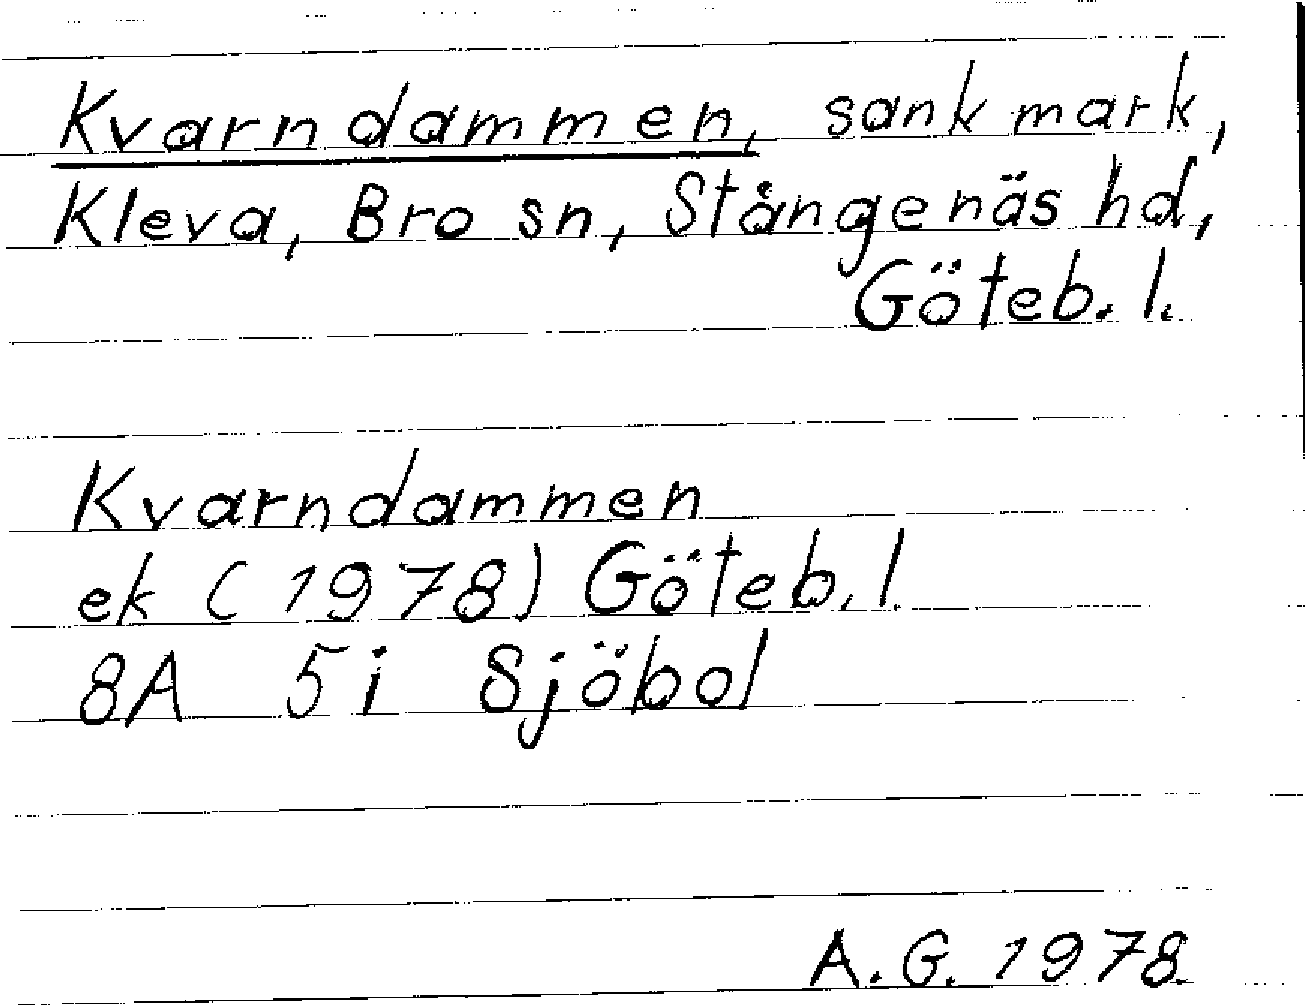 Kvarndammen, sank mark,
Kleva, Bro sn, Stångenäs hd,
Göteb. l.
Kvarndammen
ek (1978) Göteb. l.
8A 5i Sjöbol
A. G. 1978.